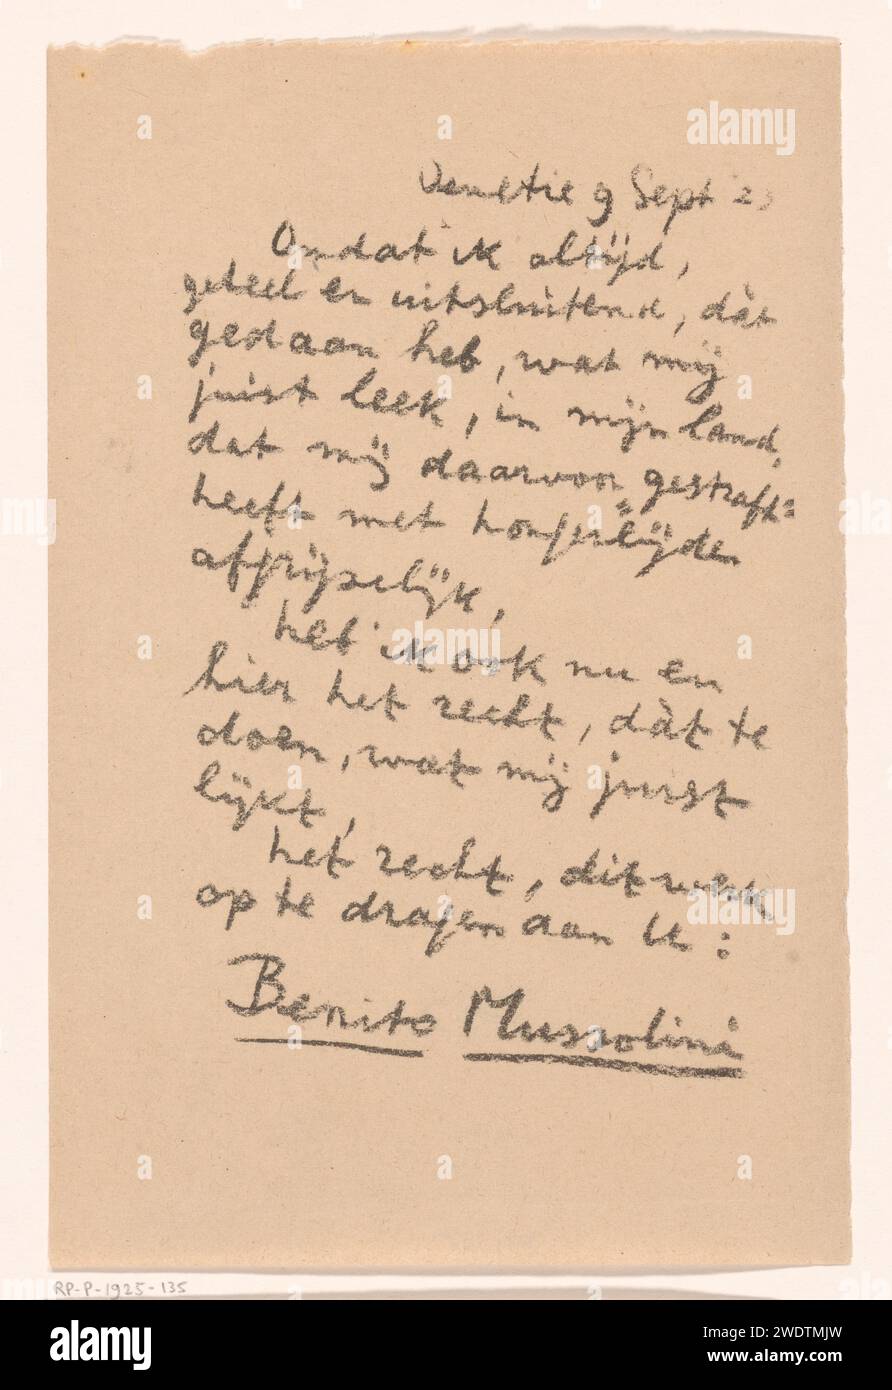 Venetie 9 Sept 23
Omdat ik altijd,
geheel en uitsluitend, dàt
gedaan heb, wat mij
juist leek, in mijn land,
dat mij daarvoor gestraft
heeft met hongerlijden
afgrijselijk,
heb ik ook nu en
hier het recht, dàt te
doen, wat mij juist
lijkt,
het recht, dit werk
op te dragen aan U:
Benito Mussolini
RP-P-1925-135
alamy
Image ID: 2WDTMJW
www.alamy.com